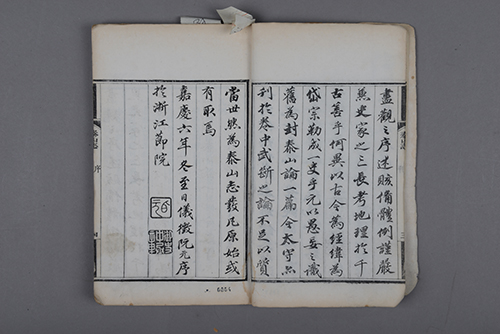 盡觀之序述賅備體例謹嚴
兼史家之三長考地理於千
古善乎何異以古今為經緯為
岱宗勒成一史乎元以愚妄之識
舊為封泰山論一篇今太守亦
刊於卷中武斷之論不足以質
當世然為泰山志發凡原始或
有取焉
嘉慶六年冬至日儀徵阮元序
於浙江節院
伯元
序